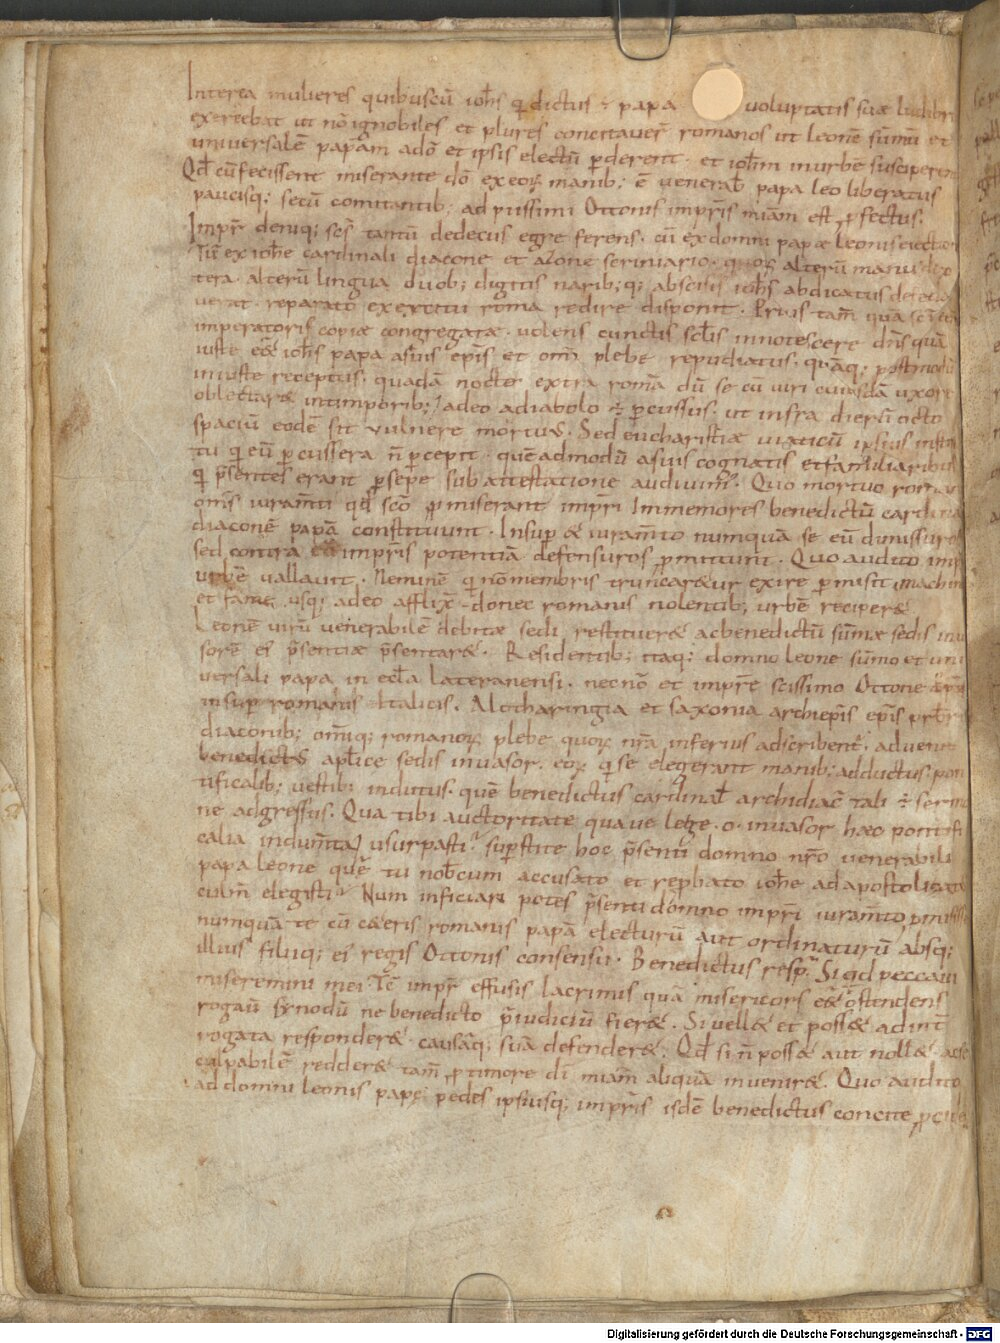 Interea mulieres quibuscũ ioħs q̃ dictus ÷ papa voluptatis suæ ludibri
exercebat ut nõ ignobiles et plures concitaver̃ romanos ut leonẽ sũmũ et
universalẽ papam adõ et ipsis electũ ꝑderent· et ioħm inurbẽ susciperen
Qđ cũ fecissent miserante dõ exeoꝝ manib; ẽ venerab̃ papa leo liberatus
paucisq; secũ comitantib; ad piissimi Ottonis imp̃ris miam est ꝓfectus;
Imp̃r deniq; scs̃ tantũ dedecus egre ferens· cũ ex domni papæ leonis eiectio
Tũ ex ioħe cardinali diacone et azone scriniario· quoꝝ alterũ manu dex
tera· alterũ lingua duob; digitis narib; q; abscisis ioħs abdicatus defeda
verat· reparato exercitu romã redire disponit· Prius tam̃ quã
imperatoris copiæ congregatæ· volens cunctis scłis innotescere dñs quã
iuste eẽt ioħs papa asuis ep̃is et om̃i plebe repudiatus· quãq; postmodũ
iniuste receptus· quadã nocte extra romã dũ se cũ viri cuiusdã uxore
oblectaret intimporib; adeo adiabolo ÷ ꝑcussus· ut infra dierũ octo
spaciũ eodẽ sit vulnere mortuus· Sed eucharistiæ viaticũ ipsius instin
tu q eũ ꝑcussera ñ ꝑcepit· quẽadmodũ asuis cognatis et familiaribus
q̃ p̃sentes erant ꝑsepe sub attestatione audivim;· Quo mortuo roman
om̃s iuram̃ti qđ scõ ꝓmiserant imp̃ri Immemores benedictũ cardina
diaconẽ papã constituunt· Insup & iuram̃to numquã se eũ dimissuros
sed contra imp̃ris potentiã defensuros ꝓmittunt· Quo audito imp̃
urbẽ vallavit· Neminẽ q̃ nõ membris truncaretur exire ꝑmisit machin
et fame usq; adeo afflixit donec romanis nolentib; urbẽ reciperet
Leonẽ virũ venerabilẽ debitæ sedi restitueret ac benedictũ sũmæ sedis inva
sorẽ ei p̃sentiæ p̃sentaret· Residentib; itaq; domno leone sũmo et uni
versali papa in eccła lateranensi· necnõ et imp̃re scissimo Ottone
insup romanis &italicis· Alotharingia et saxonia archiep̃is ep̃is prb̃ris
diaconib; om̃iq; romanoꝝ plebe quoꝝ nr̃a inferius adscribent̃· advenit
benedictus apłice sedis invasor· eoꝝ q̃ se elegerant manib; adductus pon
tificalib; vestib; indutus· quẽ benedictus cardinał archidiac̃ tali ÷ sermo
ne adgressus· Qua tibi auctoritate quave lege· o· invasor hæc pontifi
calia indum̃ta usurpasti· supstite hoc p̃senti domno nr̃o venerabili
papa leone quẽ tu nob̃cum accusato et reꝓbato ioħe ad apostolicatꝰ
culm̃ elegisti· Num inficiari potes p̃senti domno imp̃ri iuram̃to ꝓmisisse
numquã te cũ cæteris romanis papã electurũ aut ordinaturũ absq;
illius filiiq; ei regis Ottonis consensu· Benedictus resp̃· Siqid peccavi
miseremini mei· Tc̃ imp̃r effusis lacrimis quã misericors eẽt ostendens
rogavit synodũ ne benedicto p̃iudiciũ fieret· Si vellet et posset ad inter̃
rogata responderet causãq; suã defenderet· Qđ si ñ posset aut nollet
culpabilẽ redderet tam̃ ꝓ timore dĩ miam̃ aliquã inveniret· Quo audito
ad domni leonis papę; pedes ipsiusq; imp̃ris isdẽ benedictus concite ꝓcidens